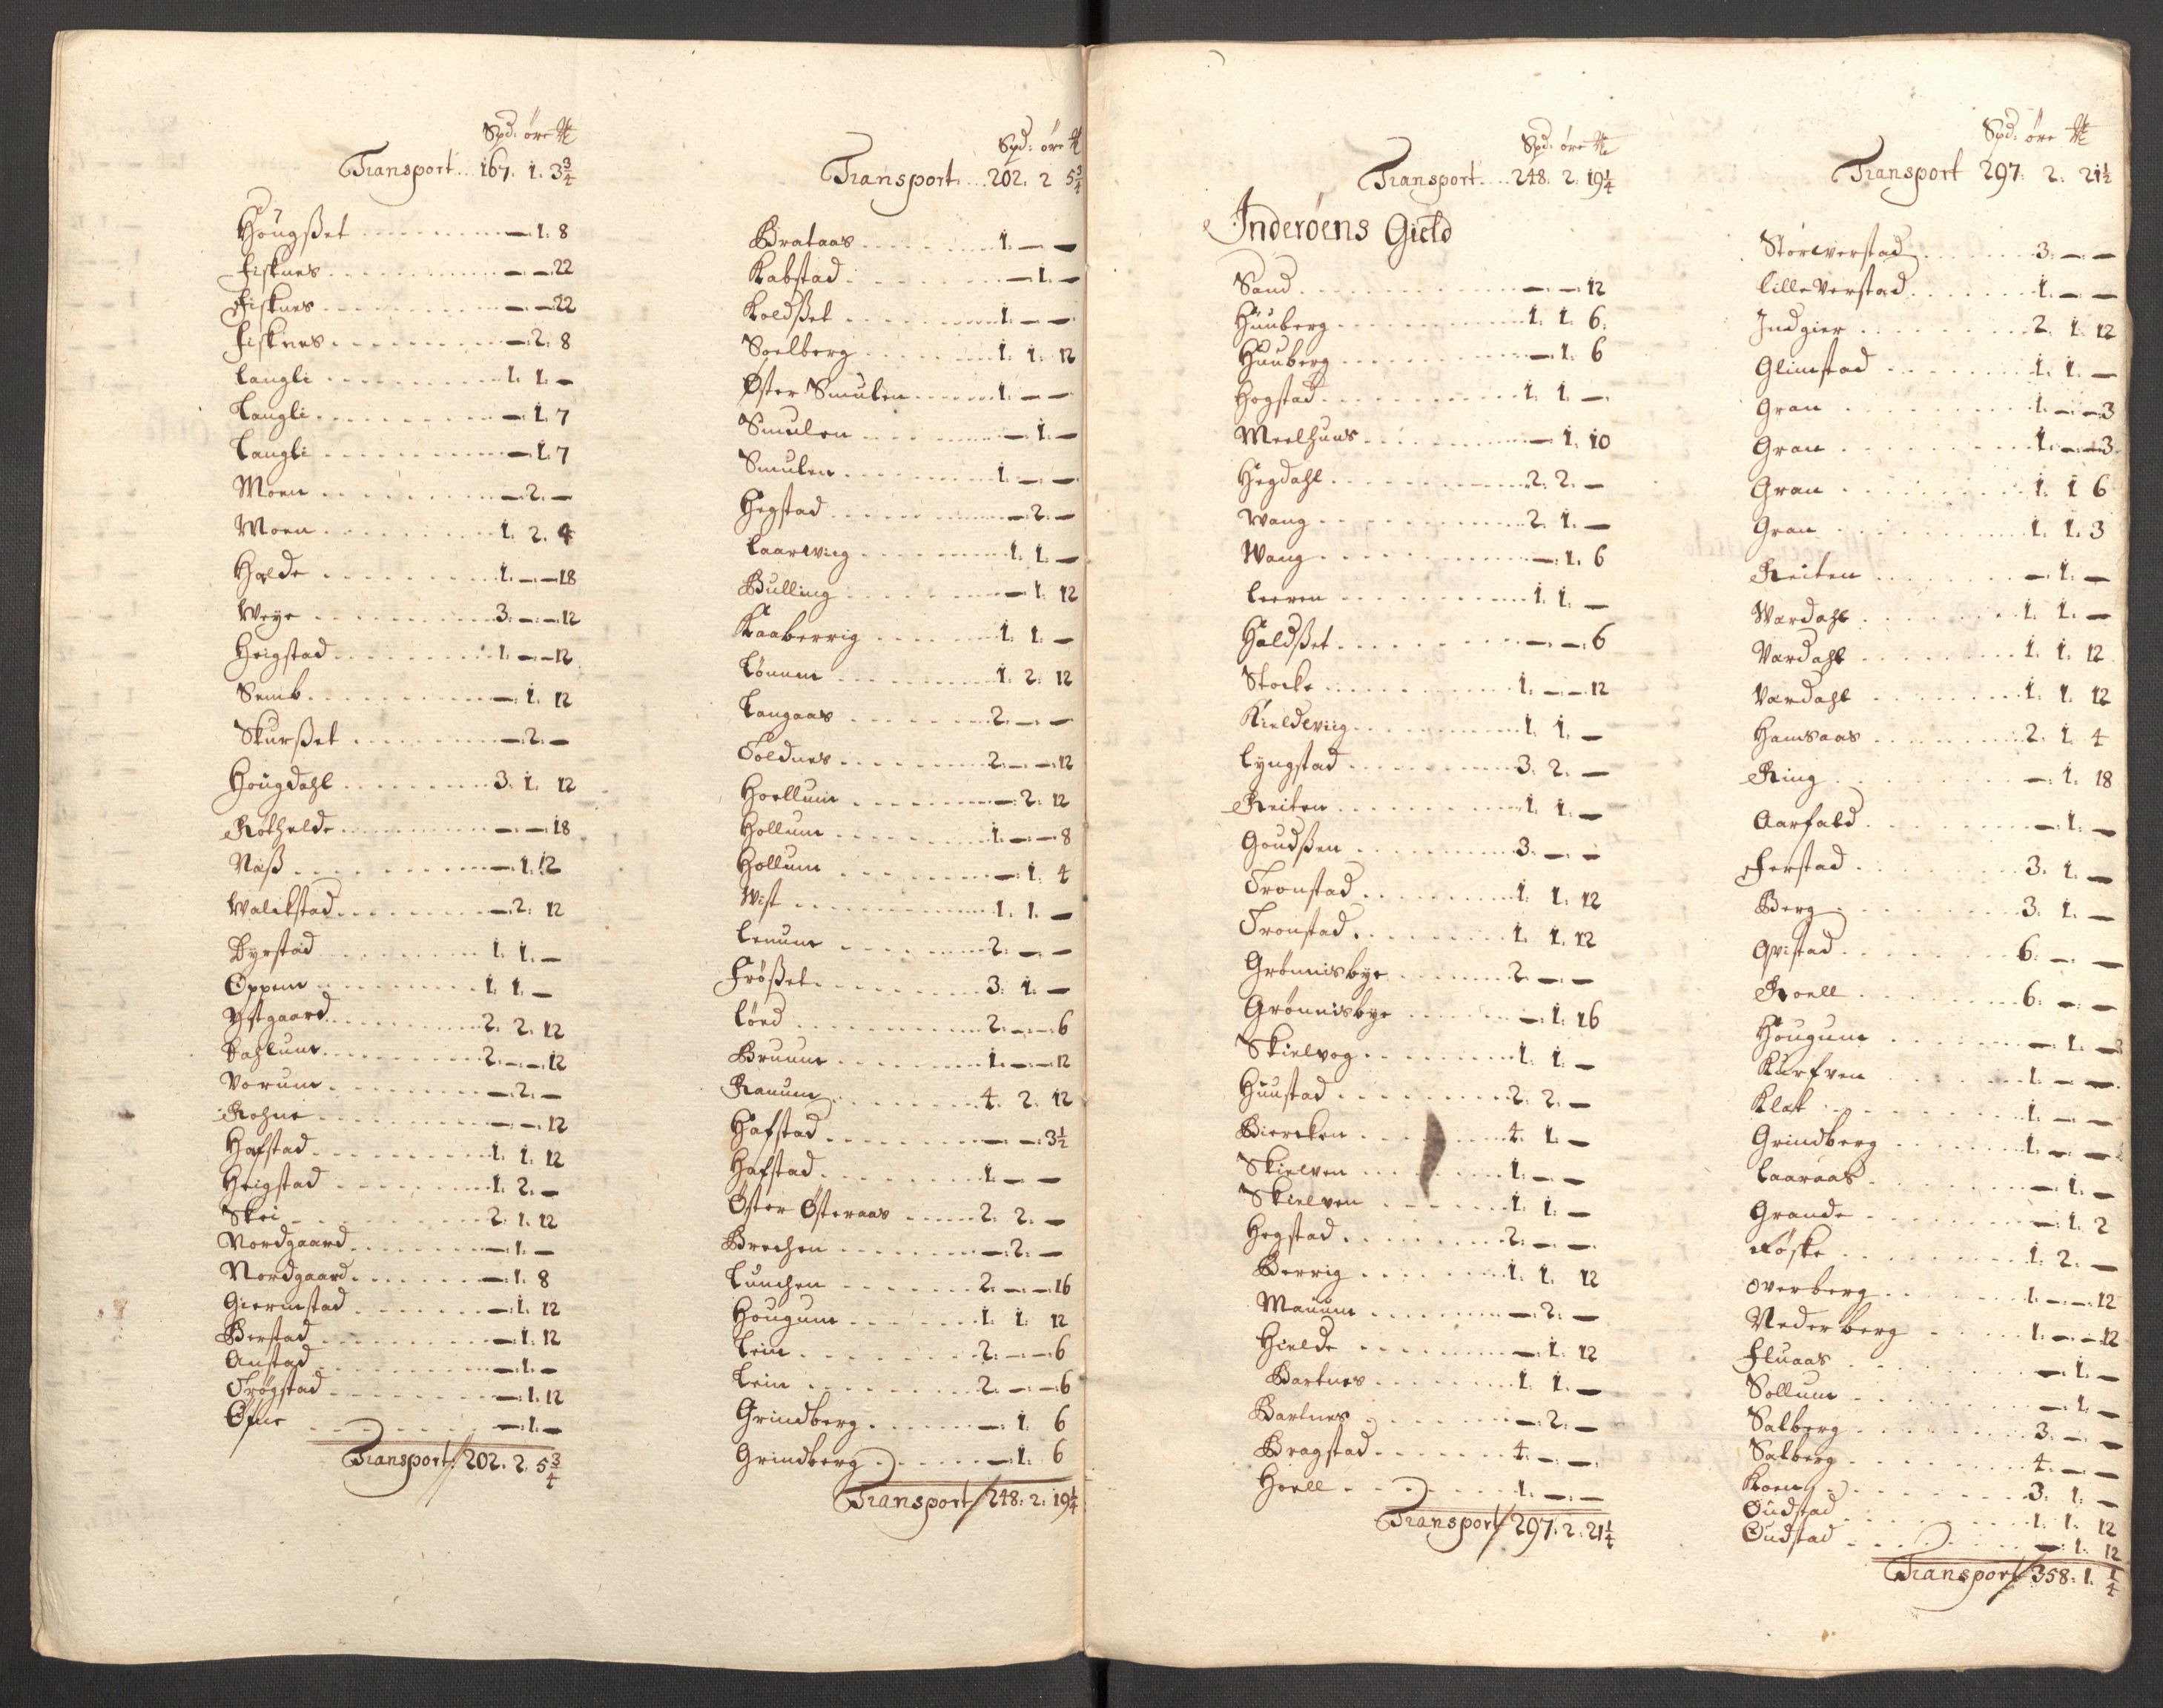 Spd: öre ℔
Transport... 167. 1. 3¾
Hougßet - 1. 8
Fisknes - - 22
Fisknes - - 22
Fisknes - 2. 8
Langli 1. 1. -
Langli - 1. 7
Langli - 1. 7
Moen - 2. -
Moen 1. 2. 4
Halde 1. - 18
Weye 3. - 12
Heigstad 1. - 12
Semb - 1. 12
Skurßet - 2. -
Hougdahl 3. 1. 12
Rothelde - - 18
Naß - 1. 12
Walckstad - 2. 12
Dyrstad 1. 1. -
Oppem 1. 1. -
Ystgaard 2. 2. 12
Dahlum 2. - 12
Vorum - 2. -
Rohne - - 12
Hafstad 1. 1. 12
Heigstad 1. 2. -
Skei 2. 1. 12
Nordgaard - 1. -
Nordgaard - 1. 8
Giermstad - 1. 12
Berstad - 1. 12
Anstad - 1. -
Trøgstad - 1. 12
Øfne - 1. -
Transport 202. 2. 5¾
Spd: öre ℔
Transport... 202. 2 5¾
Brataas 1. - -
Kabstad - 1. -
Koldßet 1. - -
Soelberg 1. 1. 12
Øster Smulen 1. - -
Smulen - 1. -
Smulen 1. - -
Hegstad - 2. -
Laarwiig 1. 1. -
Bulling - 1. 12
Kaaberrig 1. 1. -
Lønnem 1. 2. 12
Langaas 2. - -
Toldnes 2. - 12
Hoellum - 2. 12
Hollum 1. - 8
Hollum - 1. 4
Wist 1. 1. -
Lennm 2. - -
Frøßet 3. 1. -
Lørd 2. - 6
Bruum 1. - 12
Ranum 4. 2. 12
Hafstad - - 3½
Hafstad 1. - -
Øster Østeraas 2. 2. -
Brechen - 2. -
Lunchen 2. - 16
Hougum 1. 1. 12
Lein 2. - 6
Lein 2. - 6
Grindberg - 1. 6
Grindberg - 1. 6
Transport 248. 2. 19¼
Spd: öre ℔
Transport... 248. 2. 19¼
Inderöens Gield
Sand - - 12
Huuberg 1. 1. 6
Huuberg - 1. 6
Hogstad 1. 1. -
Meelhuus - 1. 10
Hegdahl 2. 2. -
Wang 2. 1. -
Wang - 1. 6
Leeren 1. 1. -
Haldßet - - 6
Stocke 1. - 12
Kieldwiig 1. 1. -
Lyngstad 3. 2. -
Reiten 1. 1. -
Goudßen 3. - -
Tronstad 1. 1. 12
Tronstad 1. 1. 12
Grønnisbye 2. - -
Grønnisbye - 1. 16
Skielvog 1. 1. -
Huustad 2. 2. -
Biercken 4. 1. -
Skielven 1. - -
Skielven 1. 1. -
Hegstad 2. - -
Berrig 1. 1. 12
Maunm - 2. -
Hielde - 1. 12
Bartnes 1. 1. -
Bartnes - 2. -
Bragstad 4. - -
Hoell 1. - -
Transport 297. 2. 21¼
Spd: öre ℔
Transport 297. 2. 21½
Storewerstad 3. - -
Lille Verstad 1. - -
Indgier 2. 1. 12
Glimstad 1. 1. -
Gran 1. - 3
Gran 1. - 3
Gran 1. 1 6
Gran 1. 1. 3
Reiten - 1. -
Wardahl 1. 1. -
Vardahl 1. 1. 12
Vardahl 1. 1. 12
Hamsaas 2. 1. 4
Ring - 1. 18
Aarfald - 1. -
Ferstad 3. 1. -
Berg 3. 1. -
Qvistad 6. - -
Roell 6. - -
Hougum - 1. -
Kurfven 1. - -
Klat 1. - -
Grindberg 1. - -
Laaraas - 1. -
Grande - 1. 2
Føske 1. 2. -
Overberg 1. - 12
Nederberg 1. - 12
Fluaas - 1. -
Sollum - 1. -
Salberg 3. - -
Salberg 4. - -
Koen 3. 1. -
Oudstad 1. 1. 12
Oudstad - 1. 12
Transport 358. 1. ¼